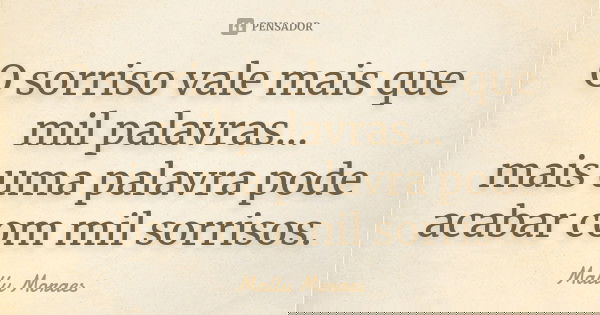 PENSADOR
O sorriso vale mais que
mil palavras...
mais uma palavra pode
acabar com mil sorrisos.
Mally Moraes